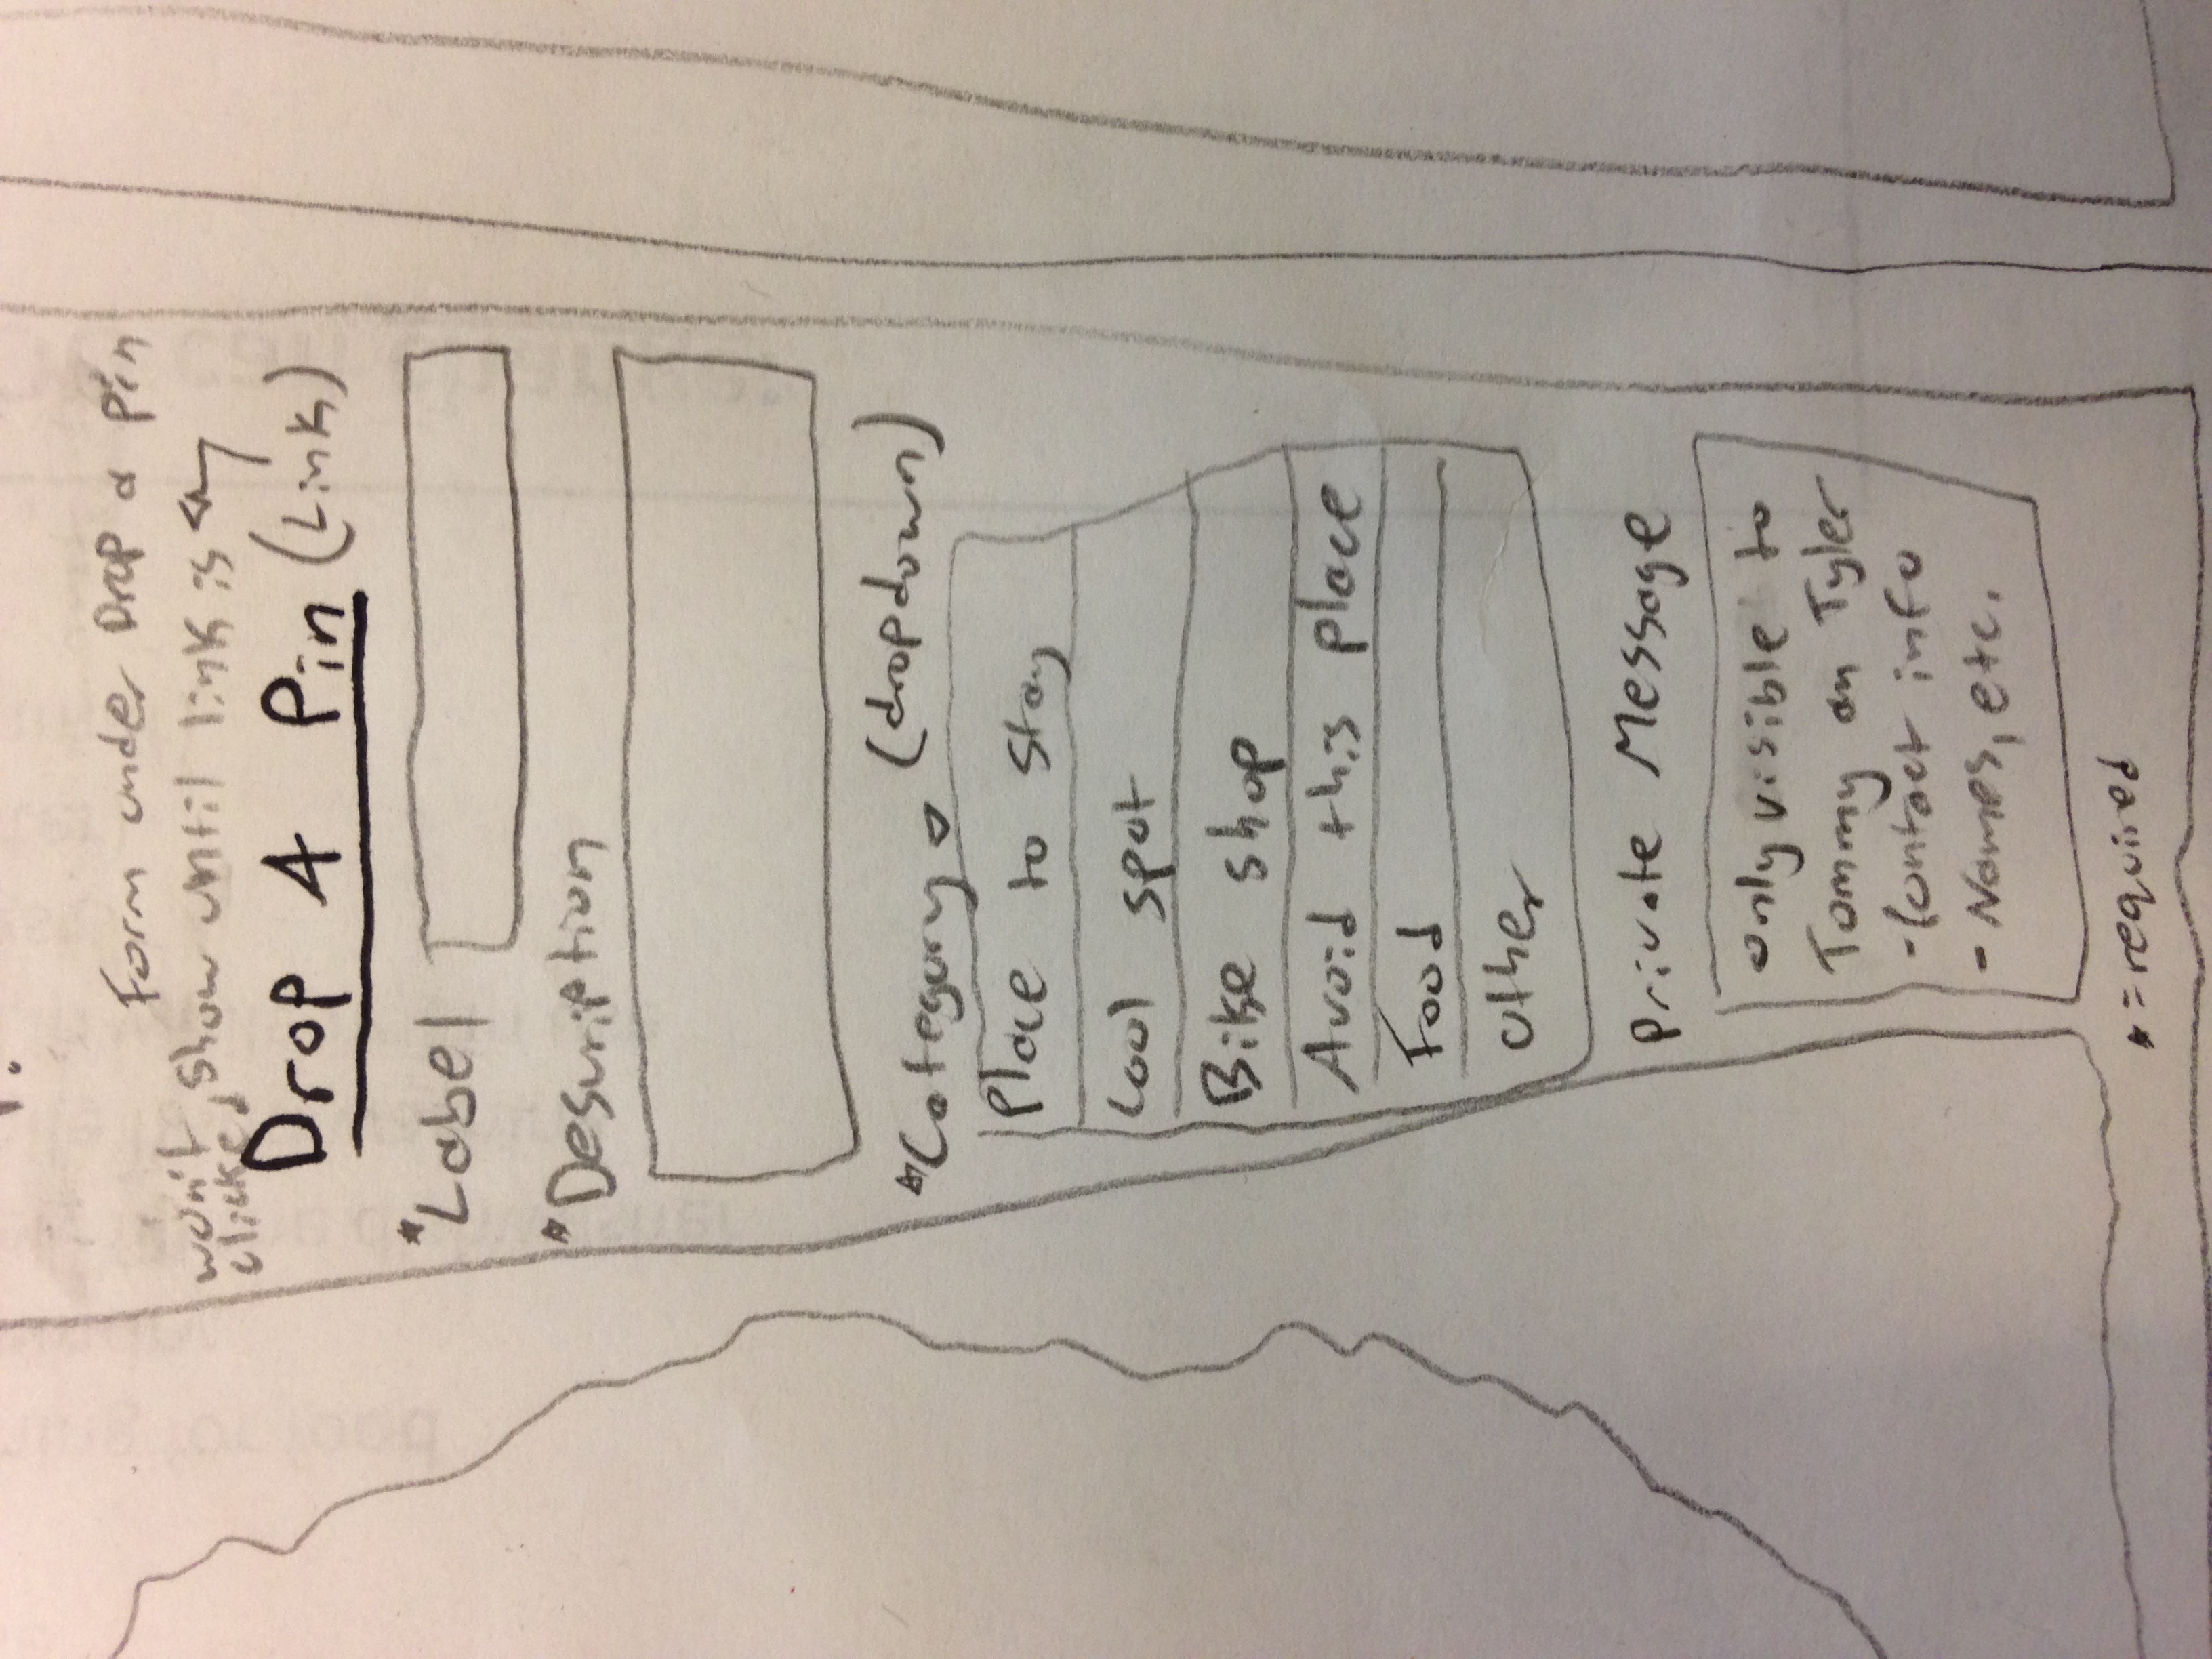 Form under Drop a pin
won't show until link is
clicked
Drop A Pin (Link)
*Label
*Description
*Category (dropdown)
Place to Stay
Cool spot
Bike shop
Avoid this place
Food
other
Private Message
only visible to
Tommy an Tyler
- Contact info
- Names, etc.
* = required